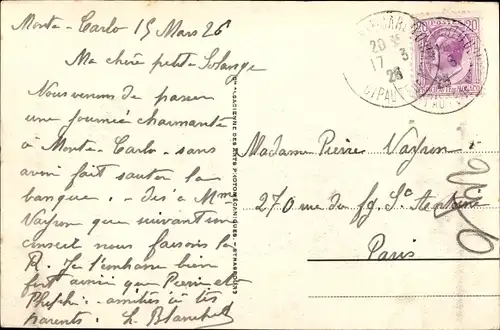 Monte-Carlo 15 Mars 26
Ma chère petite Solange
Nous venons de passer
une journée charmante
à Monte-Carlo - sans
avoir fait sauter la
banque. - dis à Mme
Vayron que suivant son
conseil nous faisons la
R. Je t'embrasse bien
fort ainsi que Pierre et
amitiés à tes
parents. L. Blanchet
20
17 3
26
POSTES
Madame Pierre Vayron.
270 rue du fg. St Antoine
Paris